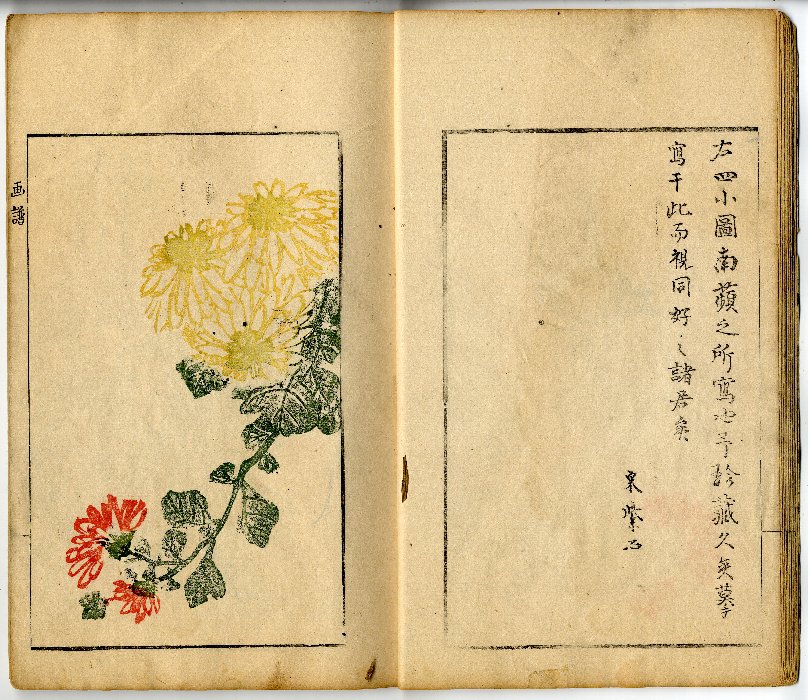 右四小圖南蘋之所寫也予珍藏久矣摹
寫于此而視同好之諸君矣
宋紫石
画譜